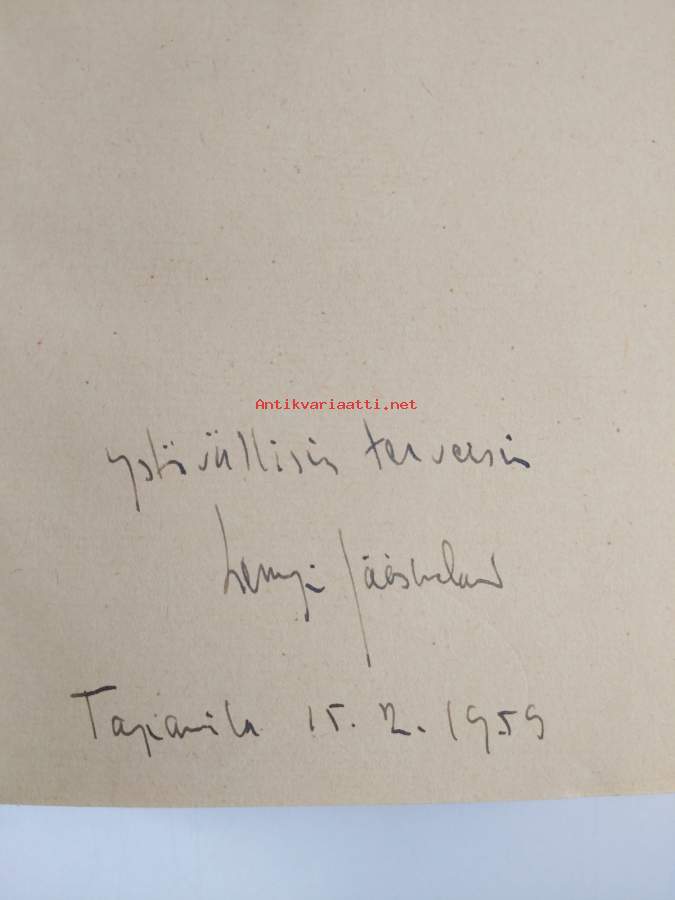 Antikvariaatti.net
ystävällisin terveisin
Lempi Jääskeläinen
Tapanila 15.2.1959